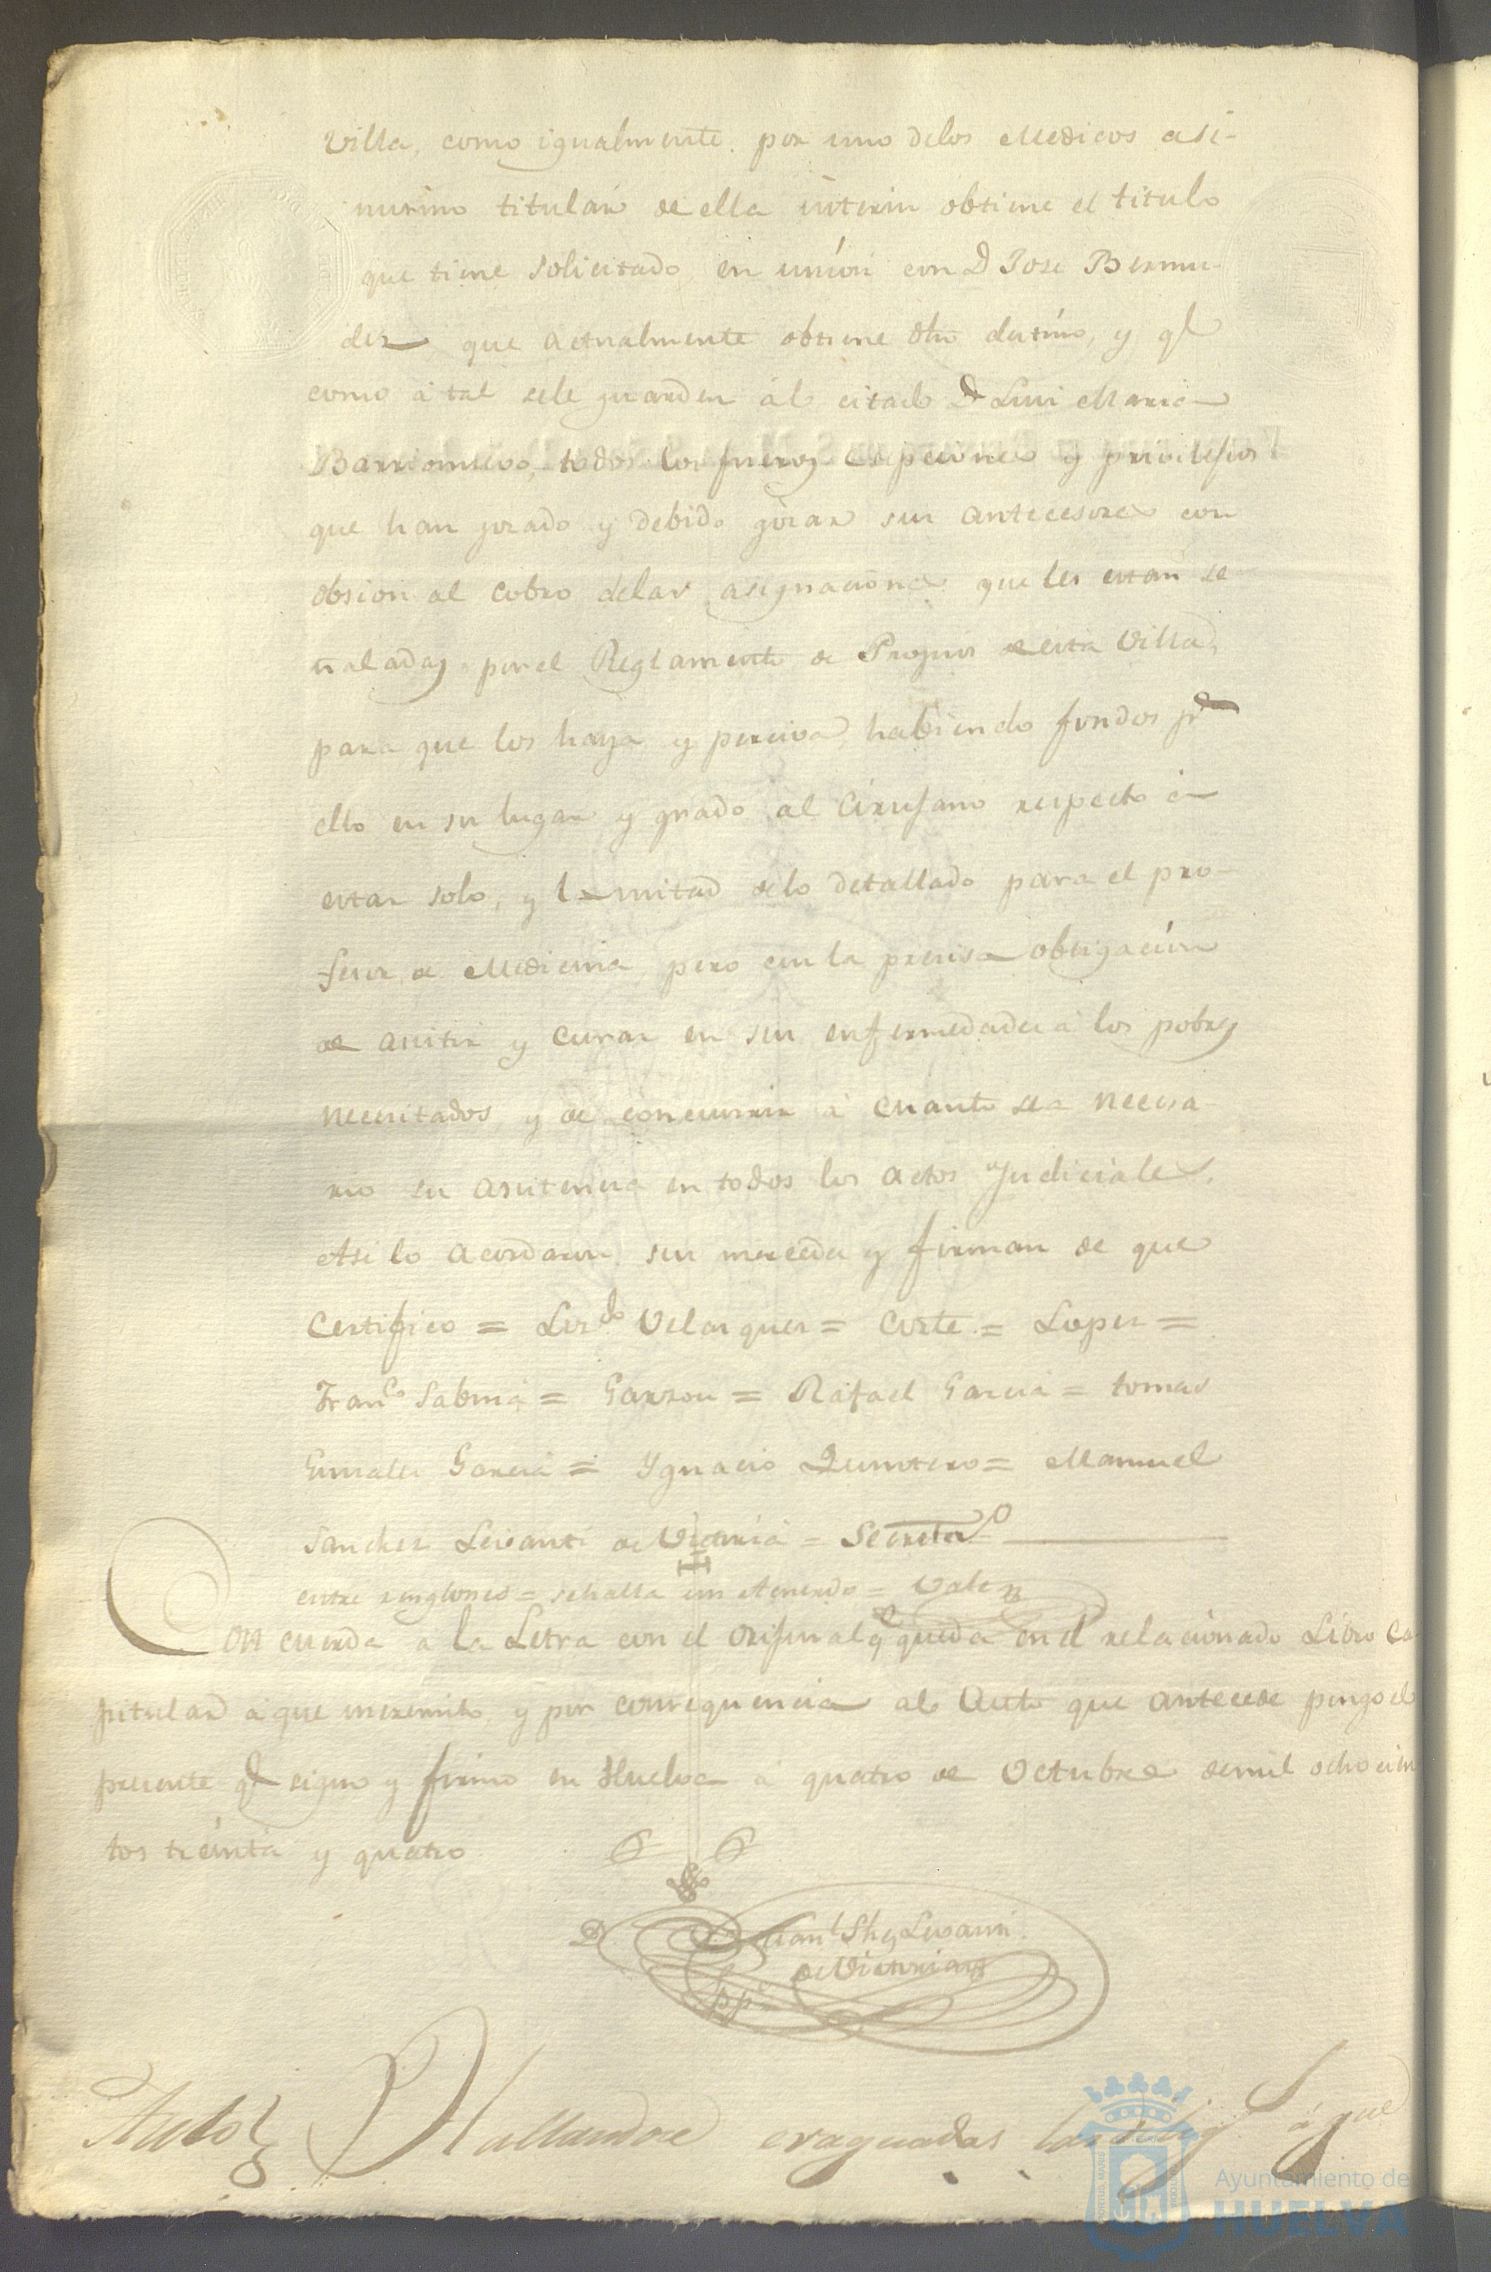 Villa, como igualmente por uno delos Medicos asi-
mismo titular de ella interin obtiene el titulo
que tiene solicitado en union con D Jose Bermu-
dez que actualmente obtiene dho destino, y ql
como á tal sele guarden ál citado Dn Luis Maria
Barrionuevo, todos los fueros esepciones y privilejios
que han gozado y debido gozar sus antecesores con
obsion al cobro delas asignaciones que les estan se
ñaladas por el Reglamento de Propios de esta Villa,
para que los haya y perciva habiendo fondos pa
ello en su lugar y grado al Cirujano respecto á
estar solo, y la mitad delo detallado para el pro-
fesor de Medicina pero con la precisa obligacion
de asistir y curar en sus enfermedades á los pobres
necesitados y de concurrir á cuanto sea necesa
rio su asistencia en todos los actos Judiciales.
Asi lo acordaron sus mercedes y firman de que
Certifico = Lizdo Velazquez = Corte = Lopez =
Franco Sabina = Garzon = Rafael Garcia = tomas
Gonzalez Garcia = Ygnacio Quintero = Manuel
Sanchez Lisanti de Victoria = Secreto
entre renglones = sehalla un Acuerdo = Vale
Concuerda a la Letra con el orijinal q queda en el relacionado Libro Ca
pitular á que meremito y por consequencia al Auto que antecede pongo el
presente ql signo y firmo en Huelva á quatro de Octubre demil ochocien
tos treinta y quatro
Manl Shz Lisanti
de Victoria
Auto Hallandose evaguadas las dilig á que
Ayuntamiento de
HUELVA